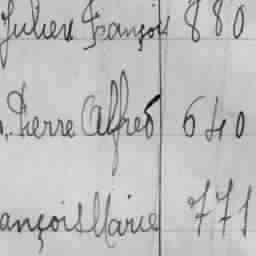 Julien François 880
Pierre Alfred 640
ançois Marie 771